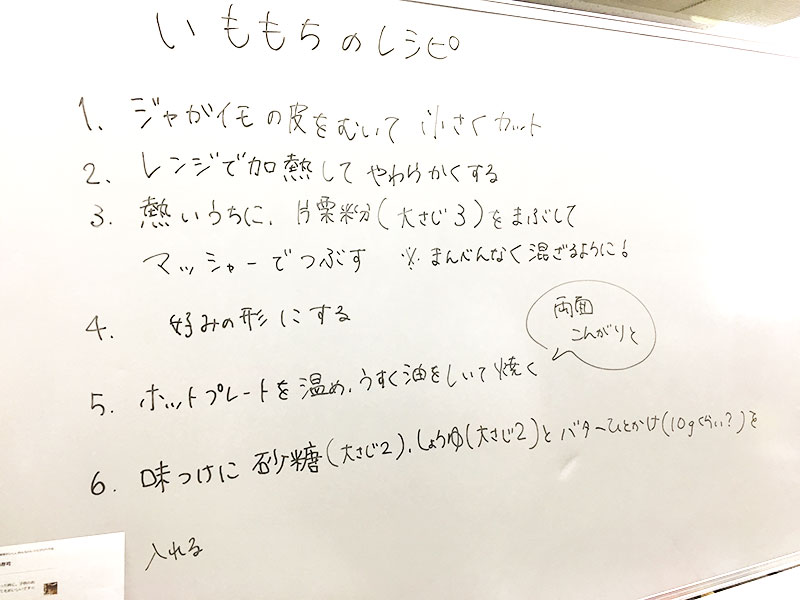 いももちのレシピ
1. ジャがイモの皮をむいて 小さくカット
2. レンジで加熱して やわらかくする
3. 熱いうちに、片栗粉(大さじ3)をまぶして
マッシャーでつぶす ※まんべんなく混ざるように!
4. 好みの形にする
5. ホットプレートを温め、うすく油をしいて焼く
両面
こんがりと
6. 味つけに 砂糖(大さじ2)、しょうゆ(大さじ2)とバターひとかけ(10gくらい?)を
入れる